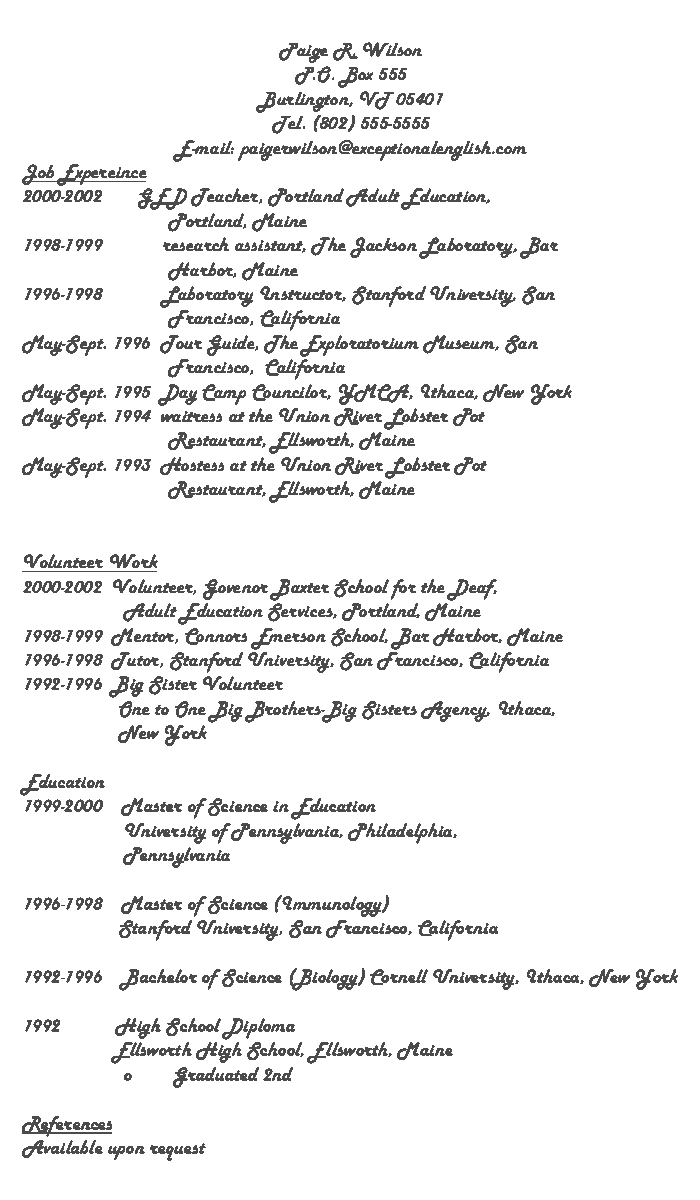 Paige R. Wilson
P.O. Box 555
Burlington, VT 05401
Tel. (802) 555-5555
E-mail: paigerwilson@exceptionalenglish.com
Job Expereince
2000-2002 GED Teacher, Portland Adult Education,
Portland, Maine
1998-1999 research assistant, The Jackson Laboratory, Bar
Harbor, Maine
1996-1998 Laboratory Instructor, Stanford University, San
Francisco, California
May-Sept. 1996 Tour Guide, The Exploratorium Museum, San
Francisco, California
May-Sept. 1995 Day Camp Councilor, YMCA, Ithaca, New York
May-Sept. 1994 waitress at the Union River Lobster Pot
Restaurant, Ellsworth, Maine
May-Sept. 1993 Hostess at the Union River Lobster Pot
Restaurant, Ellsworth, Maine
Volunteer Work
2000-2002 Volunteer, Govenor Baxter School for the Deaf,
Adult Education Services, Portland, Maine
1998-1999 Mentor, Connors Emerson School, Bar Harbor, Maine
1996-1998 Tutor, Stanford University, San Francisco, California
1992-1996 Big Sister Volunteer
One to One Big Brothers-Big Sisters Agency, Ithaca,
New York
Education
1999-2000 Master of Science in Education
University of Pennsylvania, Philadelphia,
Pennsylvania
1996-1998 Master of Science (Immunology)
Stanford University, San Francisco, California
1992-1996 Bachelor of Science (Biology) Cornell University, Ithaca, New York
1992 High School Diploma
Ellsworth High School, Ellsworth, Maine
o Graduated 2nd
References
Available upon request